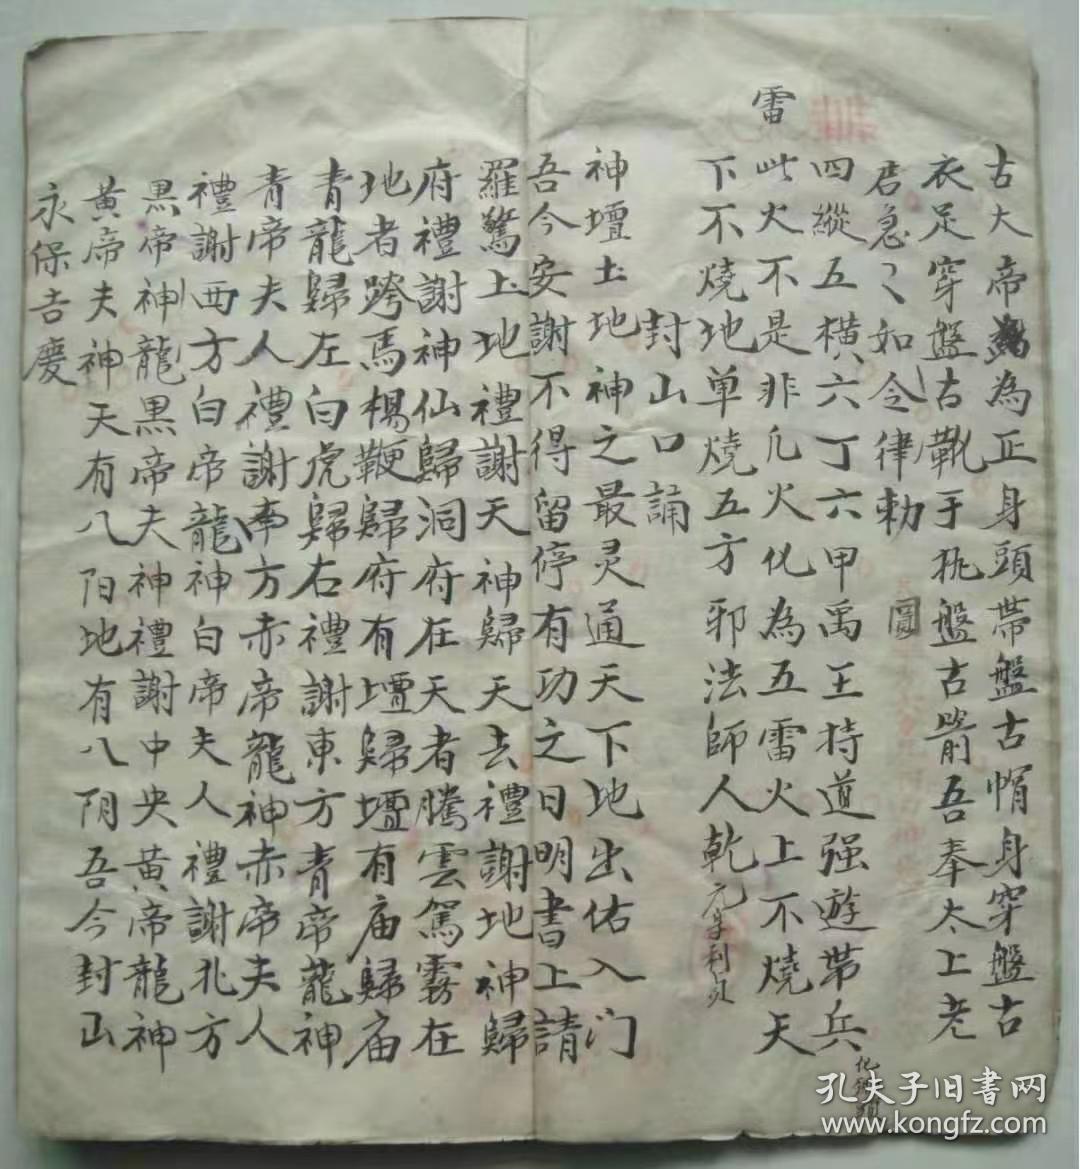 古大帝為正身頭帶盤古帽身穿盤古
衣足穿盤古靴手执盤古箭吾奉太上老
君急〻如令律勅
四縱五橫六丁六甲禹王持道强遊带兵
雷
此火不是非凡火化為五雷火上不燒天
下不燒地单燒五方邪法師人乾元亨利貞
封山口誦
神壇土地神神之最灵通天下地出佑入门
吾今安謝不得留停有功之日明書上請
羅驚土地禮謝天神歸天去禮謝地神歸
府禮謝神仙歸洞府在天者騰雲駕霧在
地者跨馬楊鞭歸府有壇歸壇有庙歸庙
青龍歸左白虎歸右禮謝東方青帝龍神
青帝夫人禮謝南方赤帝龍神赤帝夫人
禮謝西方白帝龍神白帝夫人禮謝北方
黑帝神龍黑帝夫神禮謝中央黃帝龍神
黃帝夫神天有八阳地有八阴吾今封山
永保吉慶
孔夫子旧书网
www.kongfz.com